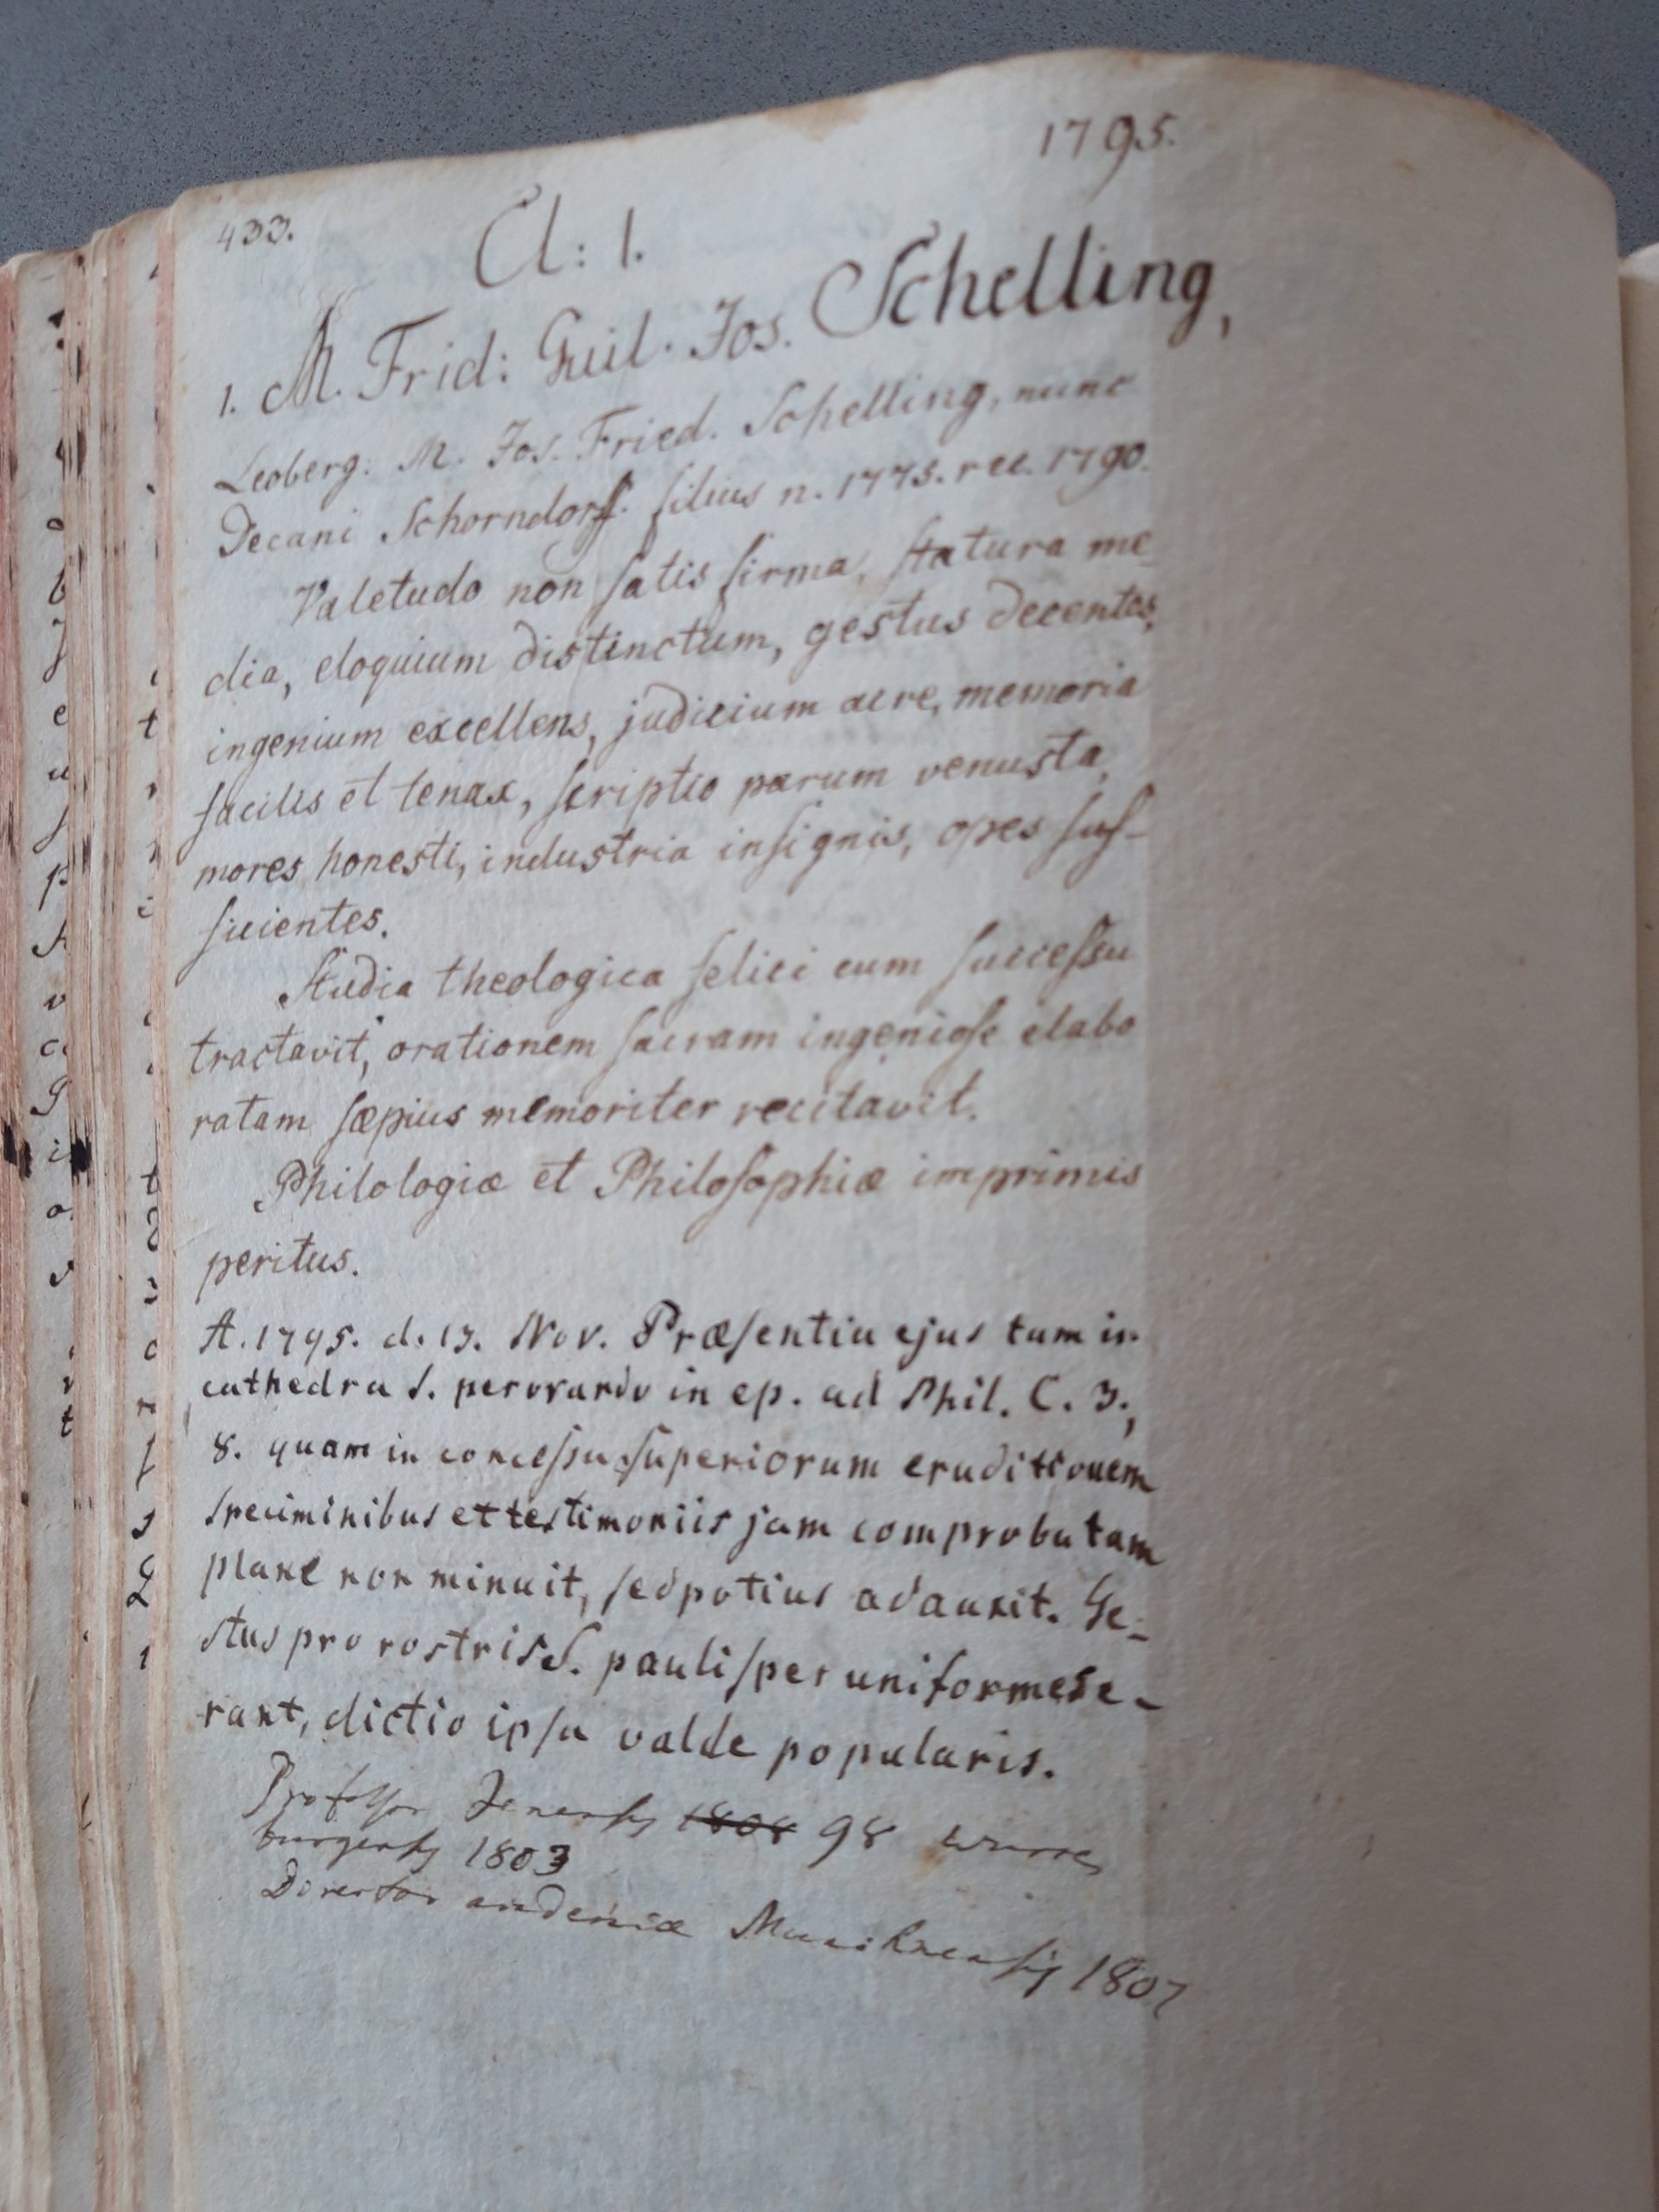 1795.
433.
Cl: 1.
1. M. Frid: Guil. Jos. Schelling,
Leoberg. M. Jos. Fried. Schelling, nunc
Decani Schorndorff. filius n. 1775. rec. 1790.
Valetudo non ſatis firma, ſtatura me_
dia, eloquium distinctum, gestus decentes,
ingenium excellens, judicium acre, memoria
facilis et tenax, ſcriptio parum venusta,
mores honesti, industria inſignis, opes ſuf-
ficientes.
Studia theologica felici cum ſucceſsu
tractavit, orationem ſacram ingenioſe elabo
ratam ſæpius memoriter recitavit.
Philologiæ et Philoſophiæ imprimis
peritus.
A. 1795. d. 13. Nov. Præſentia ejus tam in
cathedra S. perorando in ep. ad Phil. C. 3.,
8. quam in conceſsu ſuperiorum eruditionem
speciminibus et testimoniis jam comprobatam
plane non minuit, ſed potius adauxit. Ge_
stus pro rostris S. pauliſper uniformes e_
rant, dictio ipſa valde popularis.
Profeſsor Jenenſis 1808 98 Wurce
burgenſis 1803
Director academiæ Monachienſis 1807